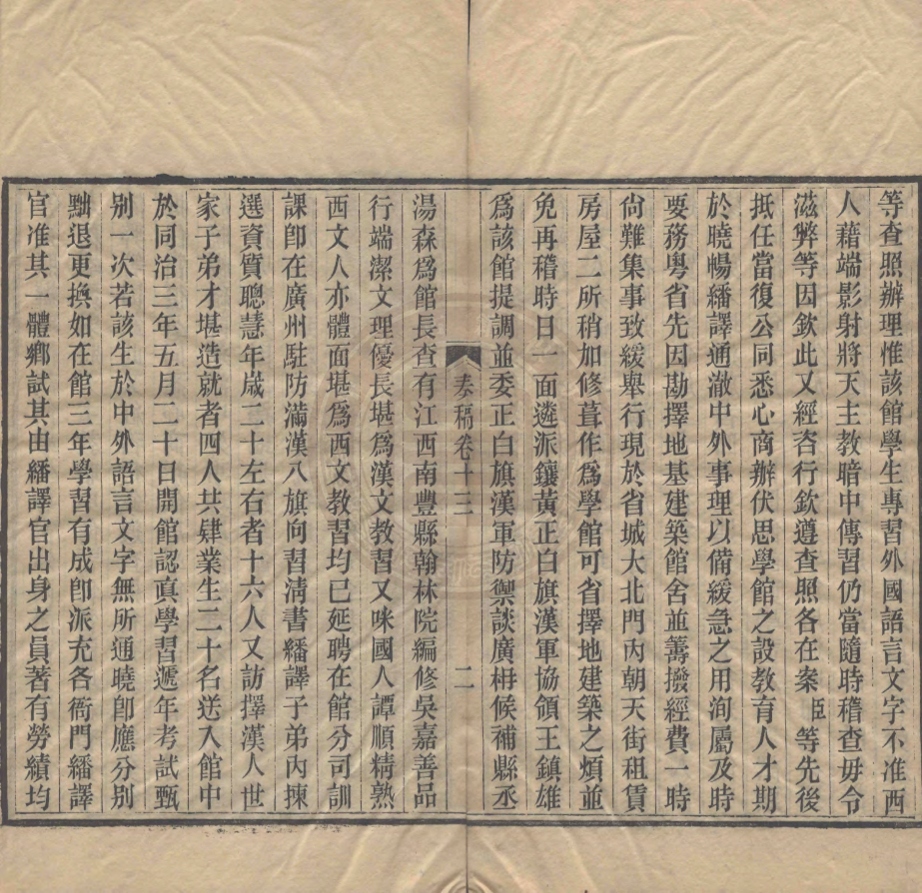 等查照辦理惟該館學生專習外國語言文字不准西
人藉端影射將天主教暗中傳習仍當隨時稽查毋令
滋弊等因欽此又經咨行欽遵查照各在案臣等先後
抵任當復公同悉心商辦伏思學館之設教育人才期
於曉暢繙譯通澈中外事理以備緩急之用洵屬及時
要務粵省先因勘擇地基建築館舍並籌撥經費一時
尙難集事致緩舉行現於省城大北門內朝天街租賃
房屋二所稍加修葺作爲學館可省擇地建築之煩並
免再稽時日一面遴派鑲黃正白旗漢軍協領王鎭雄
爲該館提調並委正白旗漢軍防禦談廣枏候補縣丞
奏稿卷十三 二
湯森爲館長查有江西南豐縣翰林院編修吳嘉善品
行端潔文理優長堪爲漢文教習又咪國人譚順精熟
西文人亦體面堪爲西文教習均已延聘在館分司訓
課卽在廣州駐防滿漢八旗向習淸書繙譯子弟內揀
選資質聰慧年歲二十左右者十六人又訪擇漢人世
家子弟才堪造就者四人共肄業生二十名送入館中
於同治三年五月二十日開館認眞學習遞年考試甄
别一次若該生於中外語言文字無所通曉卽應分别
黜退更換如在館三年學習有成卽派充各衙門繙譯
官准其一體鄉試其由繙譯官出身之員著有勞績均